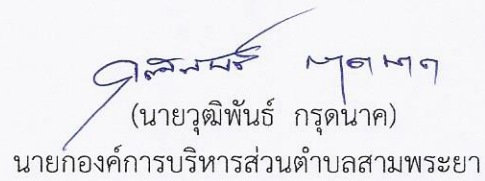 (นายวุฒิพันธ์ กรุดนาค)
นายกองค์การบริหารส่วนตำบลสามพระยา